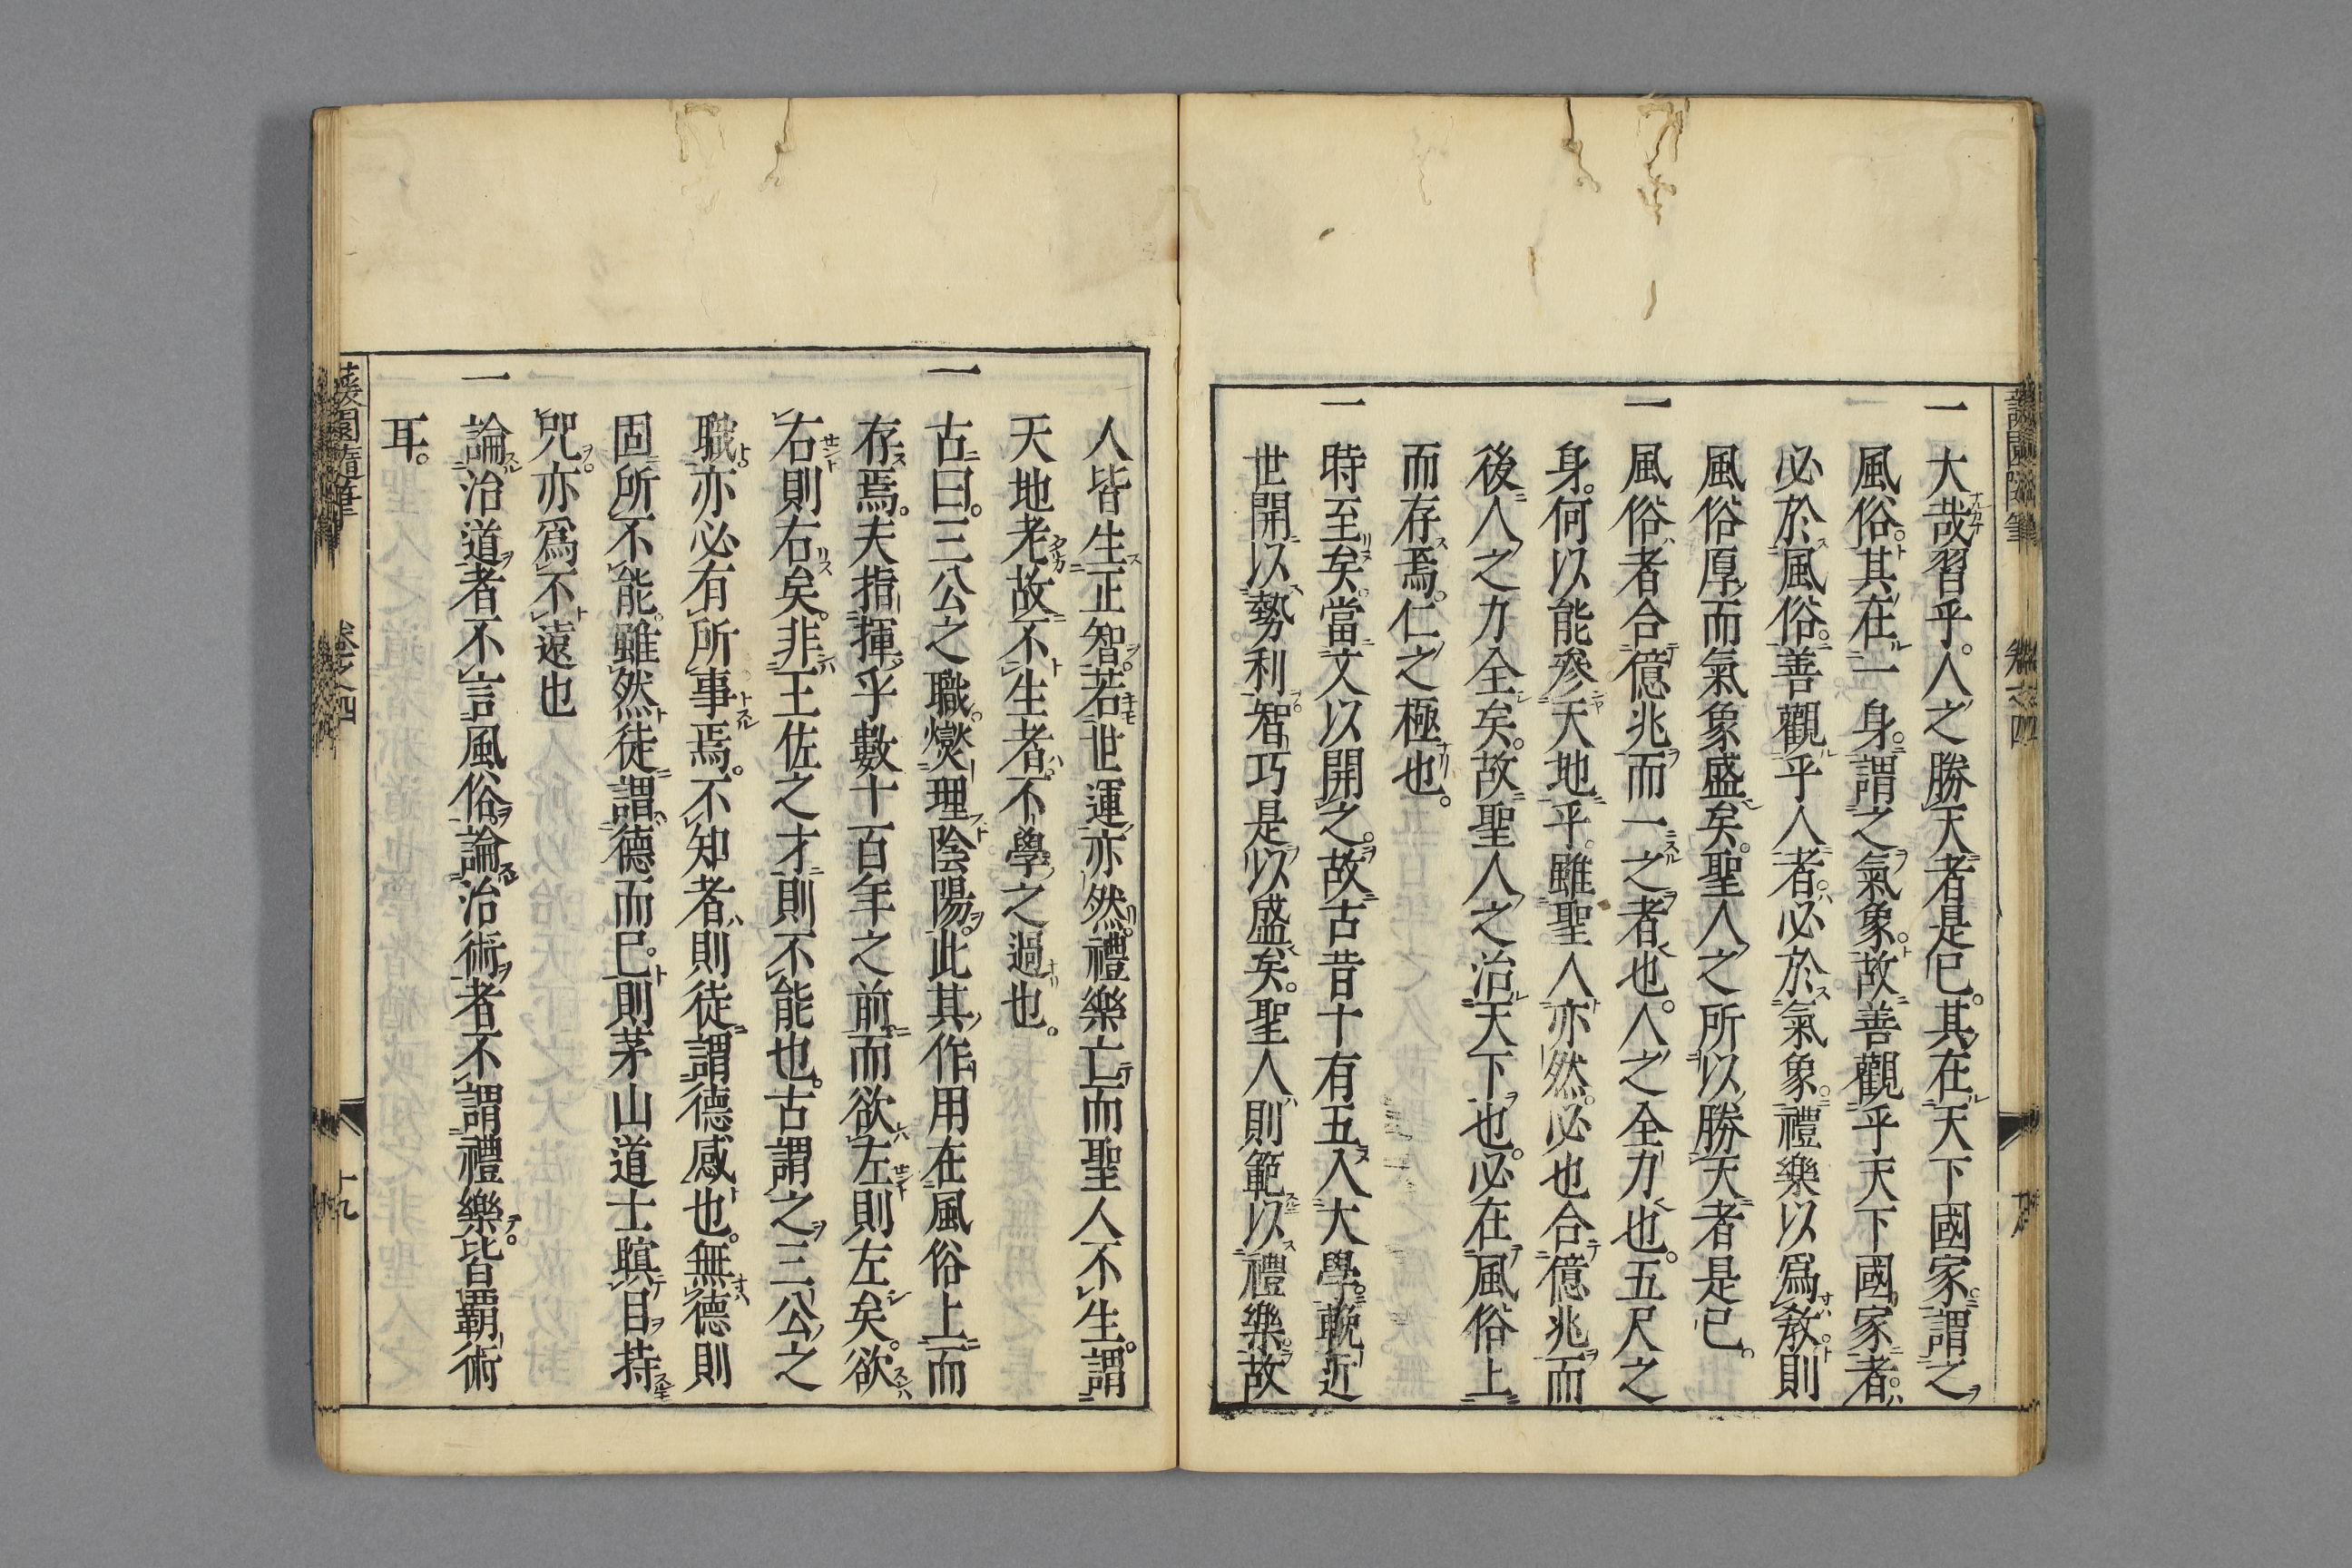 一大哉習乎。人之勝天者是已。其在天下國家。謂之
風俗。其在一身。謂之氣象。故善觀乎天下國家者。
必於風俗。善觀乎人者。必於氣象。禮樂以爲教則
風俗厚而氣象盛矣。聖人之所以勝天者是已。
一風俗者合億兆而一之者也。人之全力也。五尺之
身。何以能參天地乎。雖聖人亦然。必也合億兆而
後人之力全矣。故聖人之治天下也。必在風俗上
而存焉。仁之極也。
一時至矣。當文以開之。故古昔十有五入大學。輓近
世開以勢利智巧是以盛矣。聖人則範以禮樂。故
人皆生正智。若世運亦然。禮樂亡而聖人不生。謂
天地老故不生者。不學之過也。
一古曰。三公之職。燮理陰陽。此其作用在風俗上而
存焉。夫指揮乎數十百年之前而欲左則左矣。欲
右則右矣。非王佐之才則不能也。古謂之三公之
職。亦必有所事焉。不知者則徒謂德感也。無德則
固所不能。雖然徒謂德而已。則茅山道士瞋目持
咒。亦爲不遠也
一論治道者不言風俗。論治術者不謂禮樂。皆覇術
耳。
蘐園隨筆 卷之四 十九